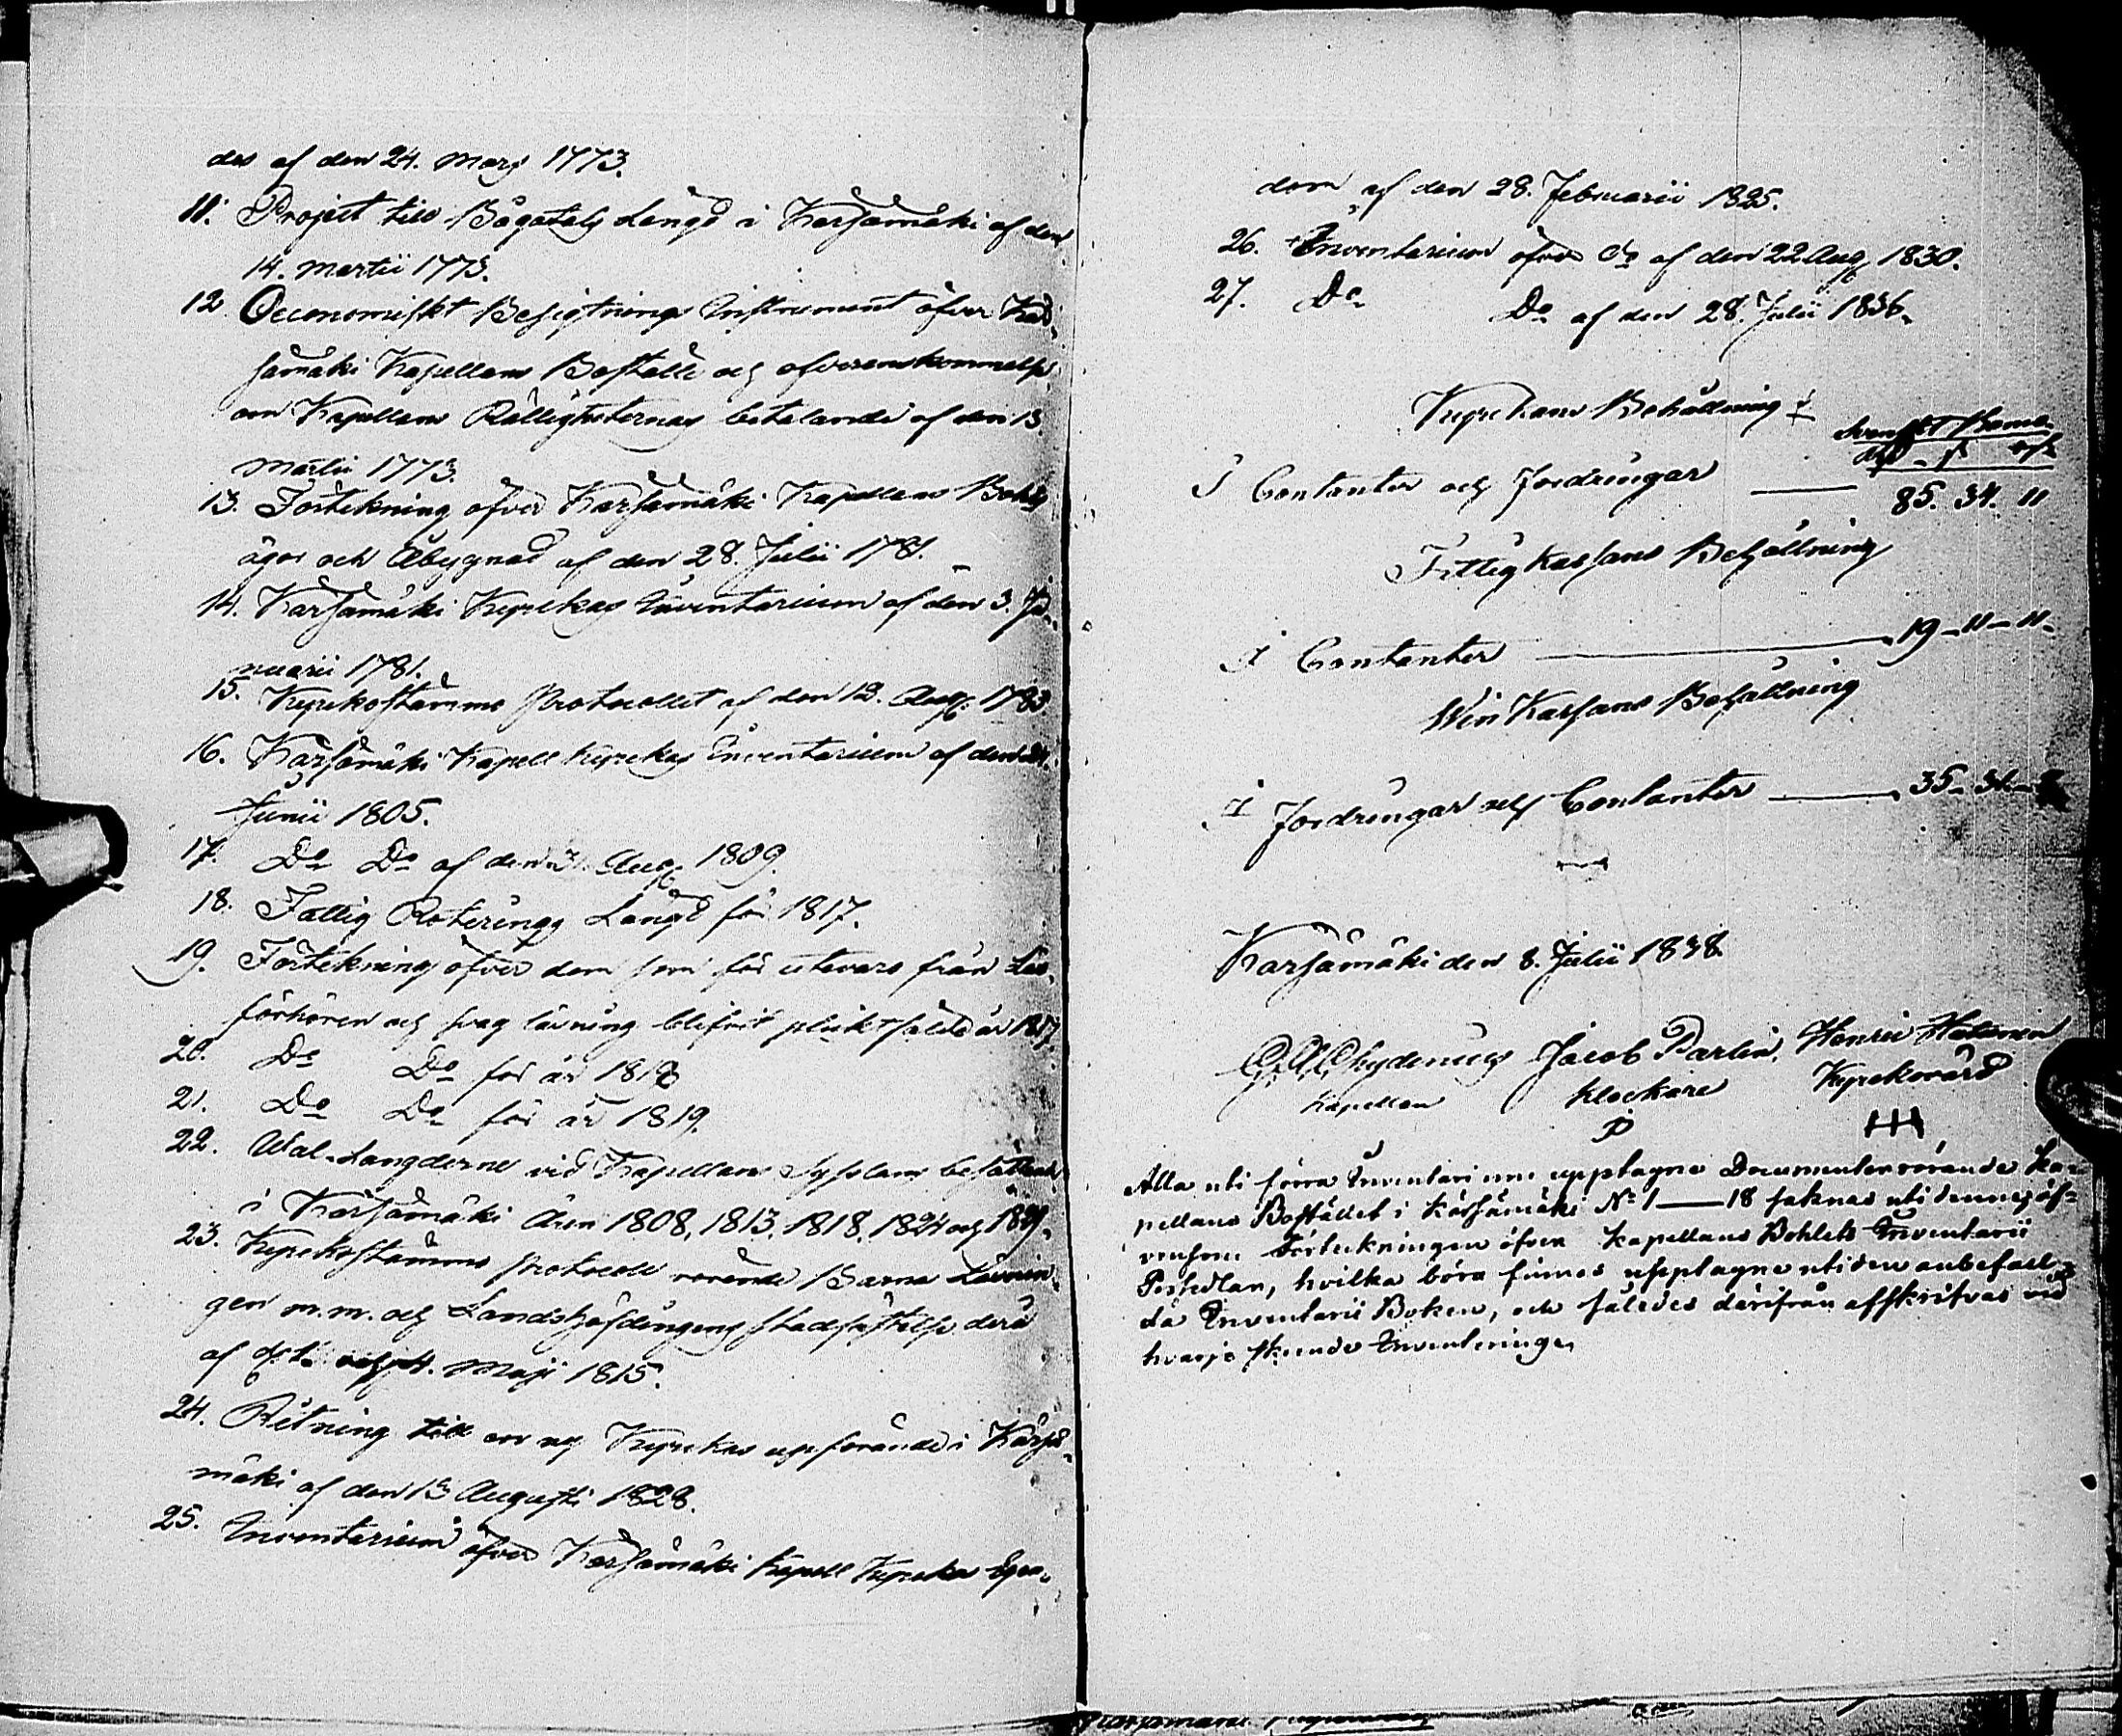 des af den 24. Marj 1773.
11. Project till Bågatals Längd i Kärsämäki af den
14. Martii 1773.
12. Oeconomiskt Besigtnings Instrument öfver Kär-
sämäki Kapellans Boställe och öfverenskommelse
om Kapellans Rättigheternas betalande af den 13
Martii 1773.
13. Förtekning öfver Kärsämäki Kapellans Bohls
ägor och Åbygnad af den 28. Julii 1781.
14. Kärsämäki Kyrckas Inventarium af den 3. Ja-
nuarii 1781.
15. Kyrkostämmo Protocollet af den 12. Aug. 1783.
16. Kärsämäki Kapell Kyrckas Inventarium af den
Junii 1805.
17. Do Do af den Aug. 1809.
18. Fattig Roterings Längd för 1817.
19. Förtekning öfver dem som för utevaro från Läs-
förhören och svag läsning blifvit pliktfälde år 1817.
20. Do Do för år 1818
21. Do Do för år 1819.
22. Wal-Längderne vid Kapellans Sysslans besättande
i Kärsämäki Åren 1808, 1813. 1818. 1824 och 1829.
23. Kyrkostämmo Protocoll rörande Barna Lärnin-
gen m.m. och Landshöfdingens stadfästelse derå
af d. Maji 1815.
24. Ritning till en ny Kyrckas upförande i Kärsä-
mäki af den 13 Augusti 1828.
25. Inventarium öfver Kärsämäki Kapell Kyrcka Egen-
dom af den 28. Februarii 1825.
26. Inventarium öfver do af den 22 Aug. 1830.
27. Do Do af den 28. Julii 1836.
Kyrckans Behållning
Svenskt Banco
Rd. s. rst.
I Contanter och Fordringar — 85. 34. 11
Fattig Kassans Behållning
I Contanter — 19 - 11 - 11.
Win Kassans Behållning
I Fordringar och Contanter — 35 - 31 -
Kärsämäki den 8. Julii 1838.
Chydenius Jacob Parlin, Henric
Kapellan Klockare Kyrckovärd
Alla uti förra Inventarium upptagne Documenter rörande Ka-
pellans Bostället i Kärsämäki No 1 — 18 saknas uti denne, äf-
vensom Förteckningen öfver Kapellans Bohlets Inventarii
Persedlar, hvilka böra finnas upptagne uti den anbefall-
da Inventarii Boken, och således därifrån affskrifvas vid
hvarje skeende Inventering.